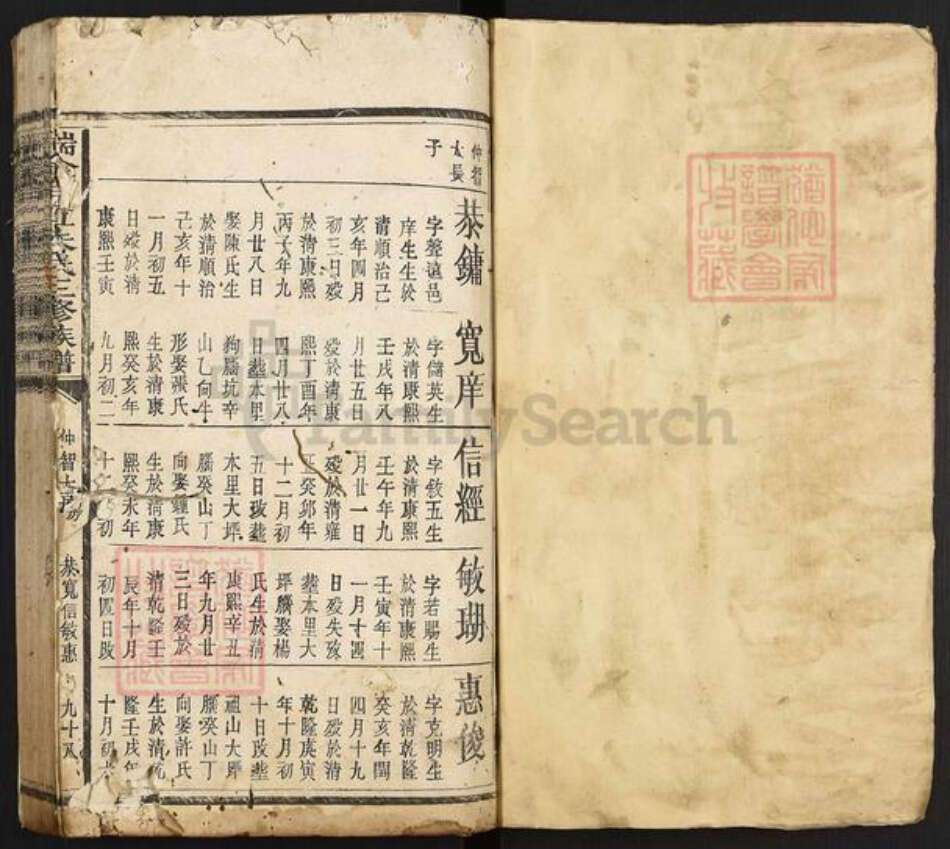 仲智
太長
子
恭鏞
字聲遠邑
庠生生於
清順治己
亥年四月
初三日殁
於清康熙
丙子年九
月廿八日
娶陳氏生
於清順治
己亥年十
一月初五
日殁於清
康熙壬寅
寬庠
字儲英生
於清康熙
壬戌年八
月廿五日
殁於清康
熙丁酉年
四月廿八
日塟本里
狗腦坑辛
山乙向牛
形娶張氏
生於清康
熙癸亥年
九月初二
信經
字敘五生
於清康熙
壬午年九
月廿一日
殁於清雍
正癸卯年
十二月初
五日殁塟
本里大坪
腦癸山丁
向娶鍾氏
生於清康
熙癸未年
敏瑚
字若賜生
於清康熙
壬寅年十
一月十四
日殁失豩
塟本里大
坪腦娶楊
氏生於清
康熙辛丑
年九月廿
三日殁於
清乾隆壬
辰年十月
初四日改
惠俊
字克明生
於清乾隆
癸亥年閏
四月十九
日殁於清
乾隆庚寅
年十月初
十日改塟
祖山大坪
腦癸山丁
向娶許氏
生於清乾
隆壬戌年
十月初
三修族譜
仲智太房
恭寬信敏惠
九十八
FamilySearch
譜學會
收藏